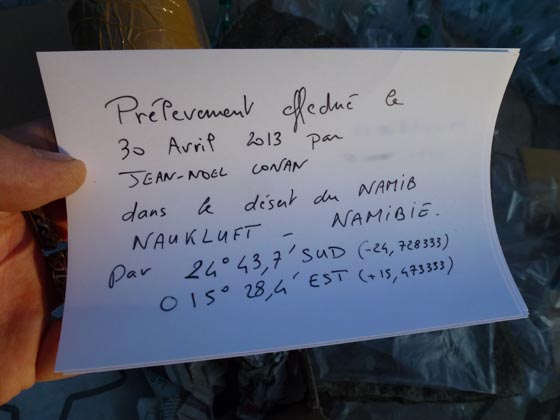 Prélevement effectué le
30 Avril 2013 par
JEAN-NOEL CONAN
dans le désert du NAMIB
NAUKLUFT - NAMIBIE.
par 24° 43,7' SUD (-24,728333)
015° 28,4' EST (+15,473333)